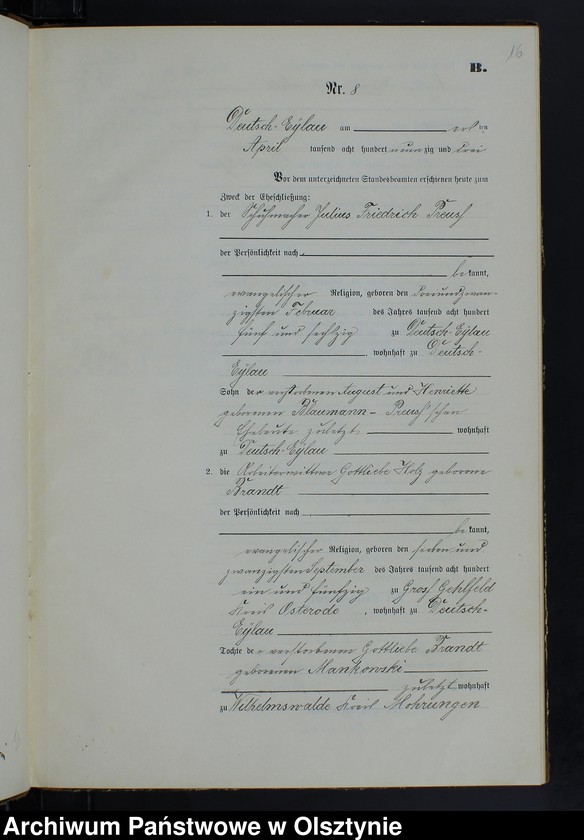 16
B.
Nr. 8
Deutsch-Eylau am ten
April tausend acht hundert neunzig und drei
Vor dem unterzeichneten Standesbeamten erschienen heute zum
Zweck der Eheschließung:
1. der Schuhmacher Julius Friedrich Preuß
der Persönlichkeit nach
bekannt,
evangelischer Religion, geboren den dreiundzwan-
zigsten Februar des Jahres tausend acht hundert
fünf und sechszig zu Deutsch-Eylau
, wohnhaft zu Deutsch-
Eylau
Sohn der verstorbenen August und Henriette
geborenen Blaumann-Preuß'schen
Eheleute zuletzt wohnhaft
zu Deutsch-Eylau
2. die Arbeiterwittwe Gottliebe Holz geborene
Brandt
der Persönlichkeit nach
bekannt,
evangelischer Religion, geboren den sieben und
zwanzigsten September des Jahres tausend acht hundert
ein und fünfzig zu Groß Gehlfeld
Kreis Osterode, wohnhaft zu Deutsch-
Eylau
Tochter der verstorbenen Gottliebe Brandt
geborenen Mankowski
zuletzt wohnhaft
zu Wilhelmswalde Kreis Mohrungen
Archiwum Państwowe w Olsztynie